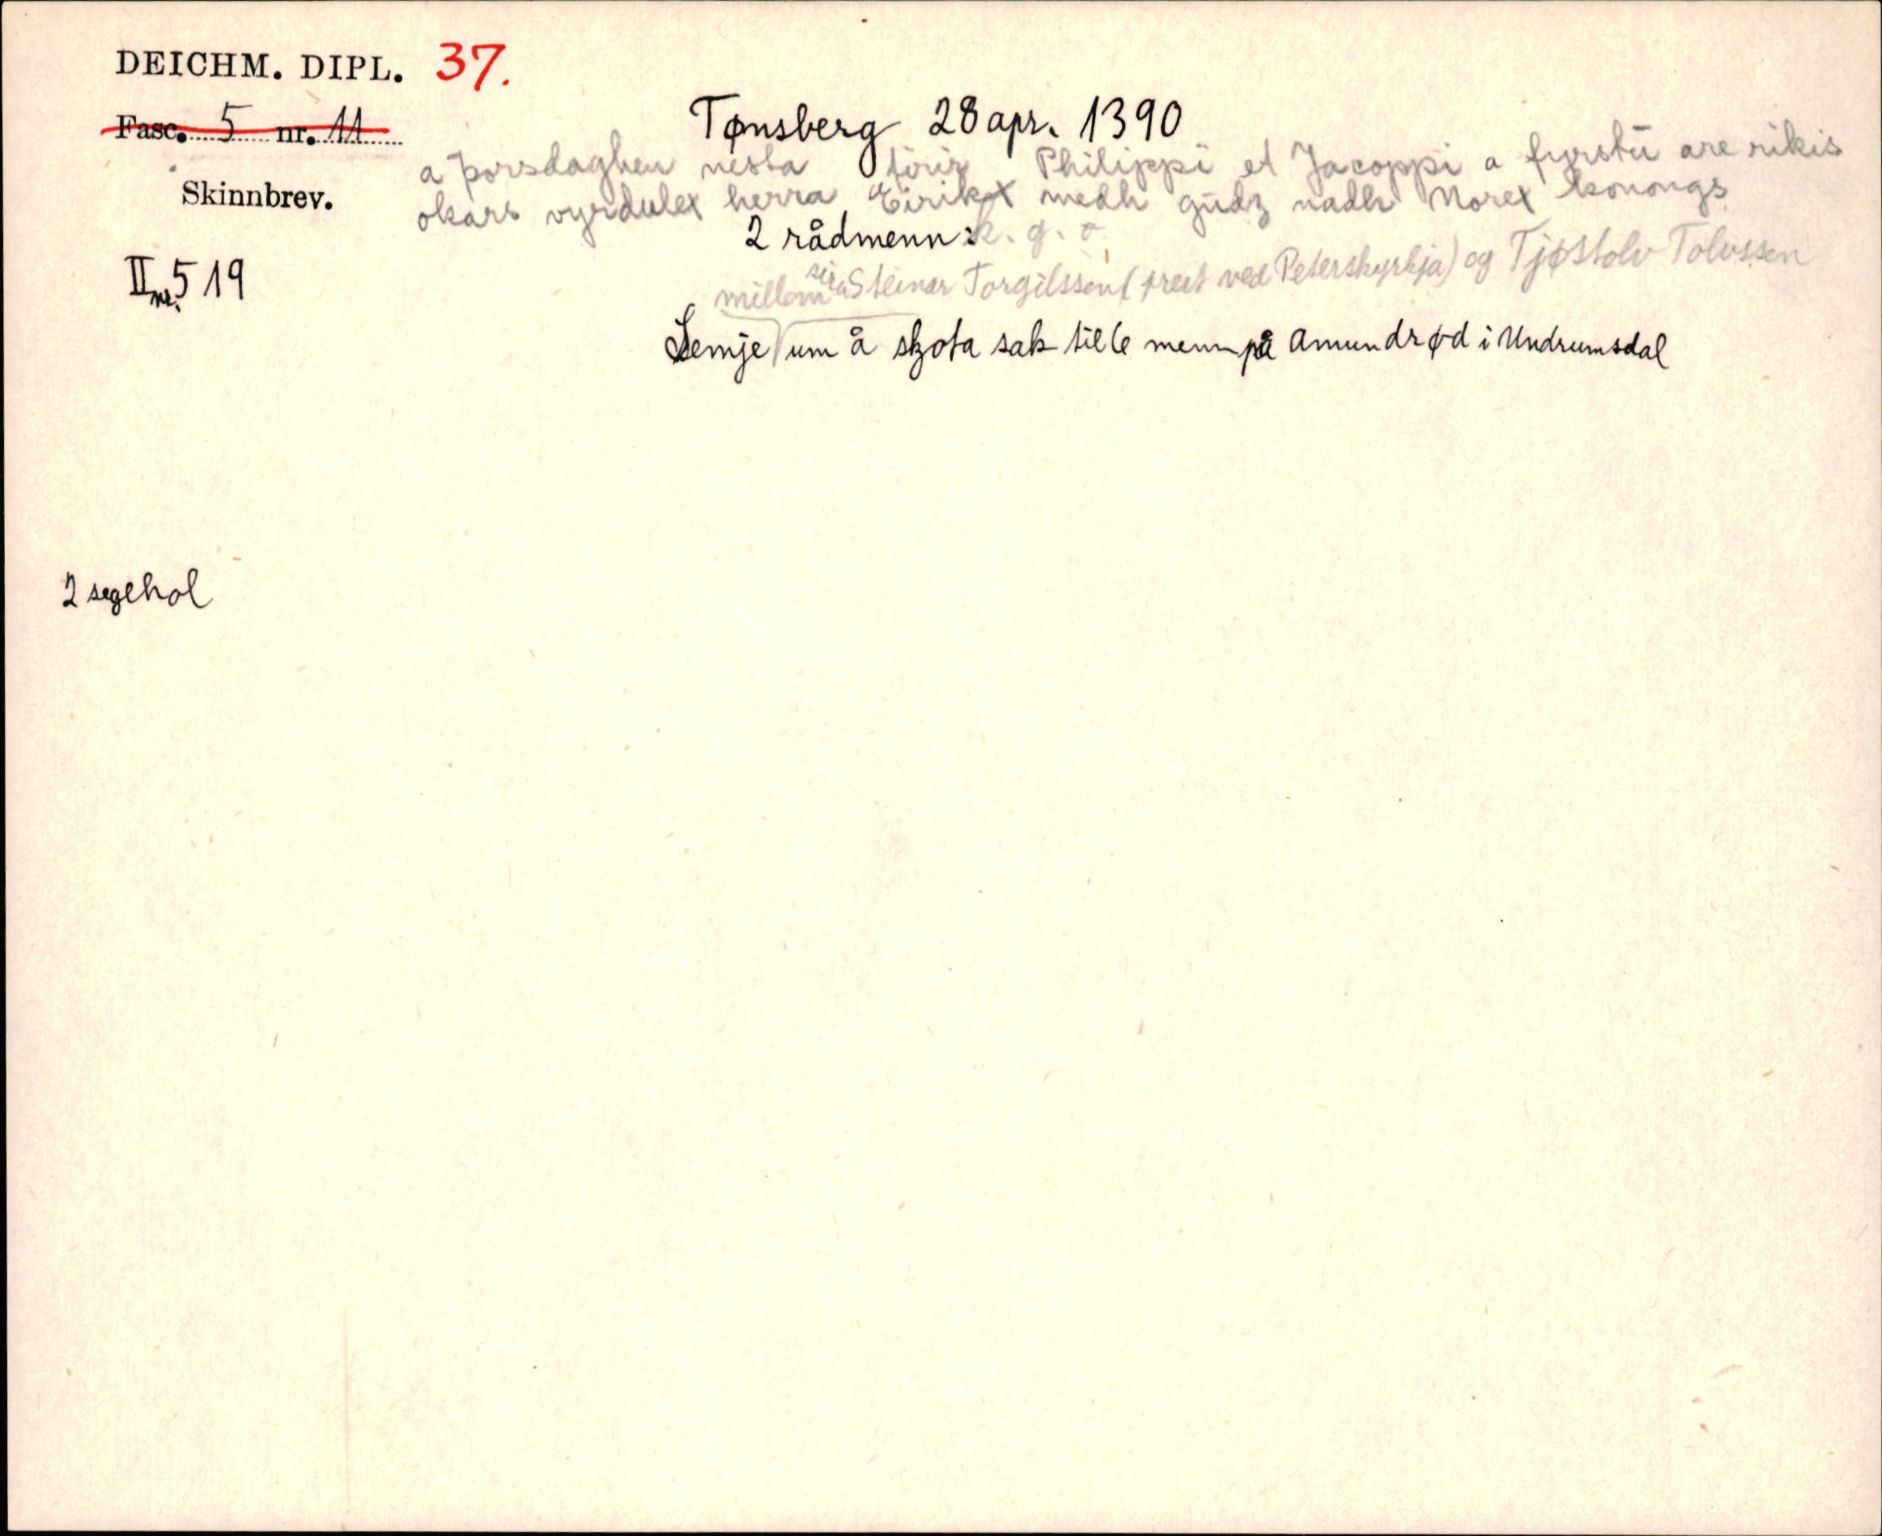 DEICHM. DIPL. 37.
Fasc. 5 nr. 11
Tønsberg 28 apr. 1390
a þorsdaghen nesta firir Philippi et Jacoppi a fyrstu are rikis
Skinnbrev.
okars vyrdulex herra Eiriks medh gudz nadh Norex konongs
2 rådmenn: k. g. o.
II nr. 519
millom sira Steinar Torgilsson (prest ved Peterskyrkja) og Tjøstolv Tolvssen
Semje um å skota sak til 6 menn på Amundrød i Undrumsdal
2 seglhol